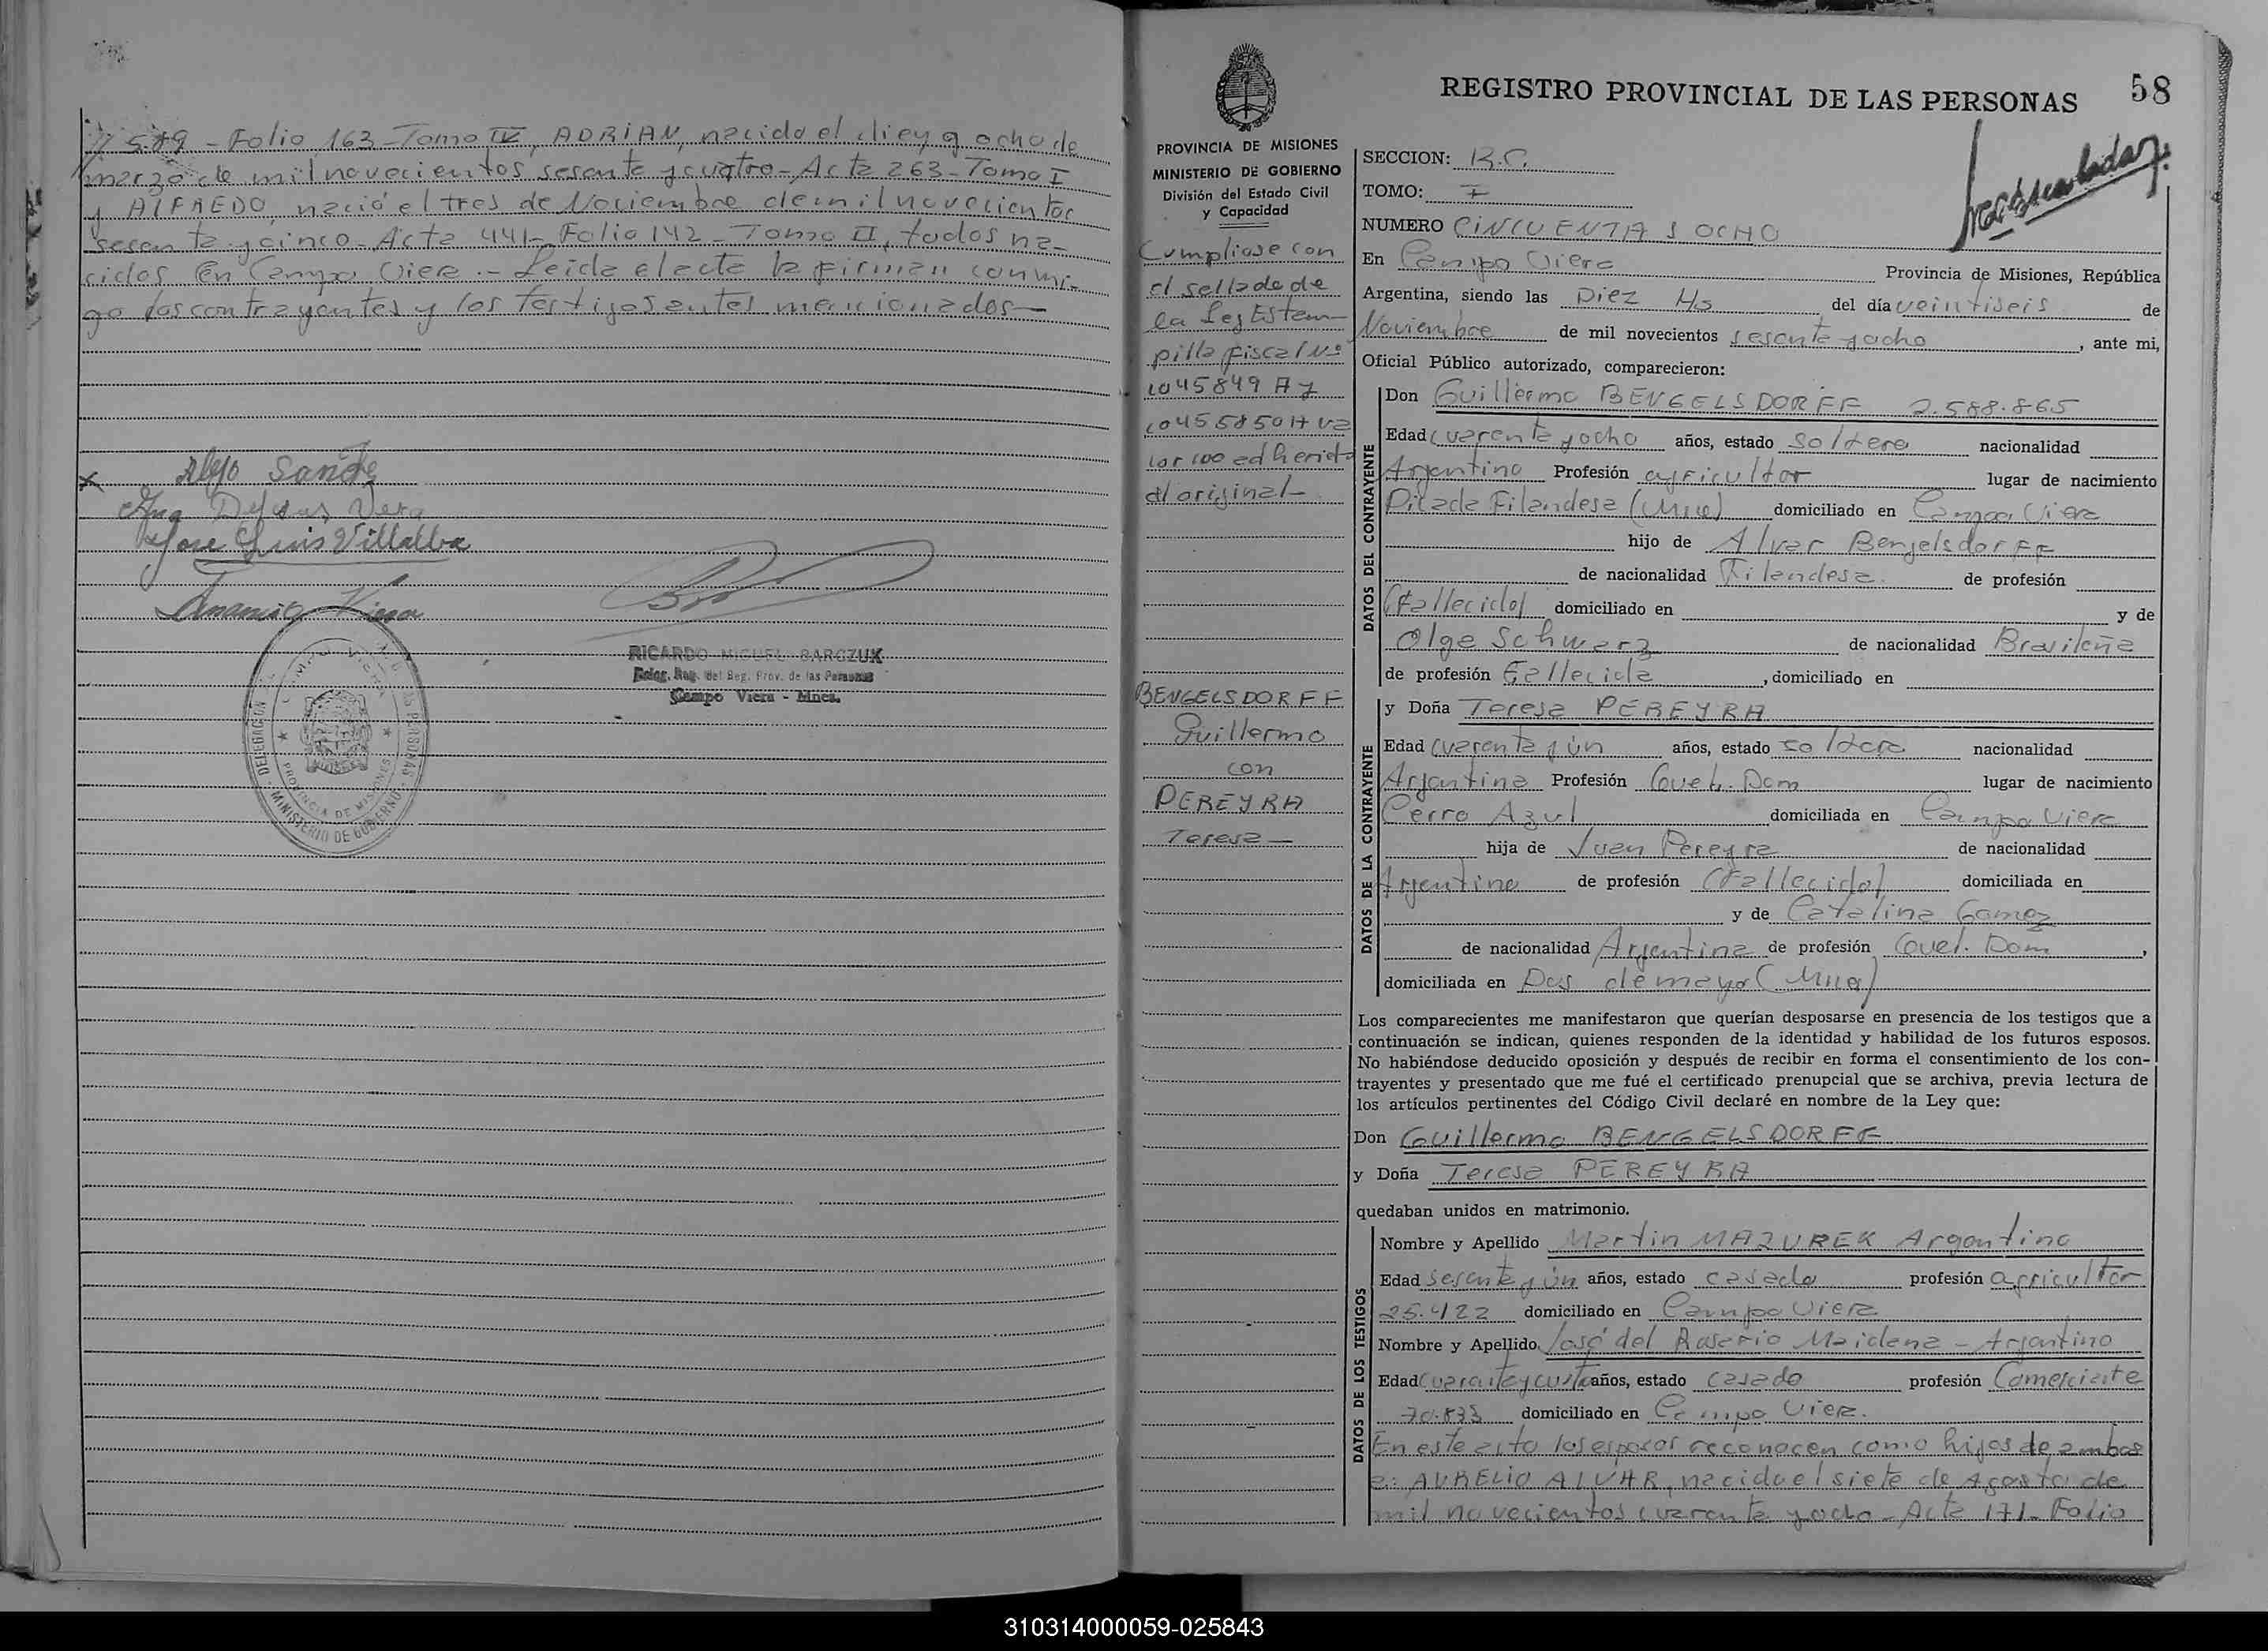 579 - Folio 163 - Tomo IV, ADRIAN, nacido el diez y ocho de
marzo de mil novecientos sesenta y cuatro - Acta 263 - Tomo I
y ALFREDO, nació el tres de Noviembre de mil novecientos
sesenta y cinco - Acta 441 - Folio 142 - Tomo II, todos na-
cidos en Campo Viera .- Leida el acta la firman conmi-
go los contrayentes y los testigos antes mencionados —
Ana De Jesus Vera
Jose Luis Villalba
RICARDO MIGUEL BARCZUK
Deleg. Reg. del Reg. Prov. de las Personas
Campo Viera - Mnes.
DELEGACION
CAMPO VIERA
PROVINCIA DE MISIONES
MINISTERIO DE GOBIERNO
58
REGISTRO PROVINCIAL DE LAS PERSONAS
PROVINCIA DE MISIONES
MINISTERIO DE GOBIERNO
División del Estado Civil
y Capacidad
Cumpliose con
el sellado de
la Ley Estam-
pilla fiscal Nº
1045849 A y
lor 100 adherida
al original -
BENGELSDORFF
Guillermo
con
PEREYRA
Teresa —
SECCION: R.C.
TOMO: I
NUMERO CINCUENTA Y OCHO
En Campo Viera Provincia de Misiones, República
Argentina, siendo las Diez Hs del día veintiseis de
Noviembre de mil novecientos sesenta y ocho, ante mi,
Oficial Público autorizado, comparecieron:
DATOS DEL CONTRAYENTE
Don Guillermo BENGELSDORFF 2.588.865
Edad cuarenta y ocho años, estado soltero nacionalidad
Argentino Profesión agricultor lugar de nacimiento
Picada Filandesa (Mnes) domiciliado en Campo Viera
hijo de Alvar Bengelsdorff
de nacionalidad Filandesa de profesión
(Fallecido) domiciliado en y de
Olga Schwarz de nacionalidad Brasileña
de profesión Fallecida, domiciliado en
DATOS DE LA CONTRAYENTE
y Doña Teresa PEREYRA
Edad cuarenta y ún años, estado soltera nacionalidad
Argentina Profesión Queh. Dom lugar de nacimiento
Cerro Azul domiciliada en Campo Viera
hija de Juan Pereyra de nacionalidad
Argentino de profesión (Fallecido) domiciliada en
y de Catalina Gomez
de nacionalidad Argentina de profesión Queh. Dom,
domiciliada en Dos de mayo (Mnes)
Los comparecientes me manifestaron que querían desposarse en presencia de los testigos que a
continuación se indican, quienes responden de la identidad y habilidad de los futuros esposos.
No habiéndose deducido oposición y después de recibir en forma el consentimiento de los con-
trayentes y presentado que me fué el certificado prenupcial que se archiva, previa lectura de
los artículos pertinentes del Código Civil declaré en nombre de la Ley que:
Don Guillermo BENGELSDORFF
y Doña Teresa PEREYRA
quedaban unidos en matrimonio.
DATOS DE LOS TESTIGOS
Nombre y Apellido Martin MAZUREK Argentino
Edad sesenta y ún años, estado casado profesión agricultor
25.422 domiciliado en Campo Viera
Nombre y Apellido José del Rosario Maidana - Argentino
Edad cuarenta y cuatro años, estado casado profesión Comerciante
70.833 domiciliado en Campo Viera.
En este acto los esposos reconocen como hijos de ambos
a: AURELIO ALVAR, nacido el siete de Agosto de
mil novecientos cuarenta y ocho - Acta 171 - Folio
310314000059-025843